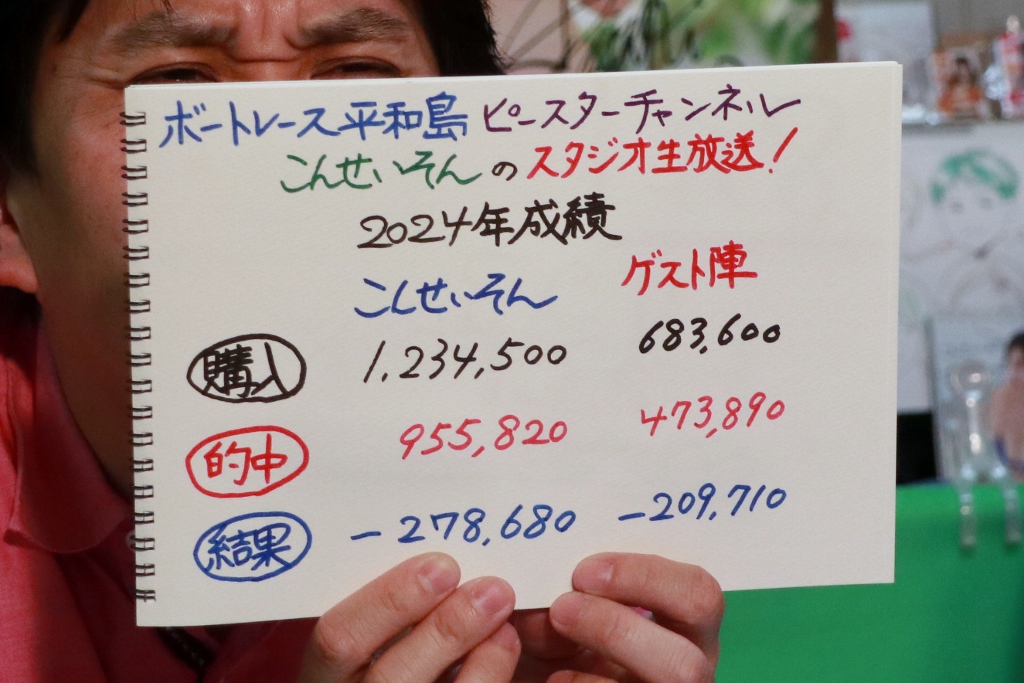 ボートレース平和島 ピースターチャンネル
こんせいそんのスタジオ生放送！
2024年成績
こんせいそん ゲスト陣
購入 1,234,500 683,600
的中 955,820 473,890
結果 -278,680 -209,710